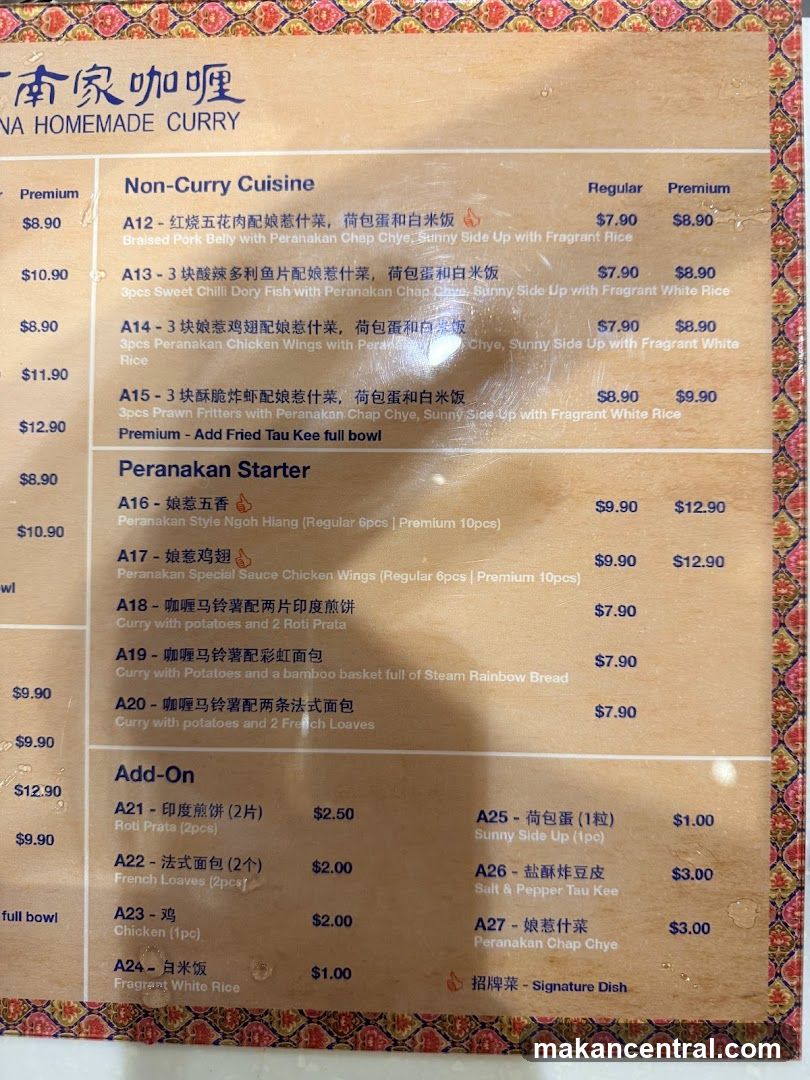 南家咖喱
NA HOMEMADE CURRY
Premium
$8.90
$10.90
$8.90
$11.90
$12.90
$8.90
$10.90
$9.90
$9.90
$12.90
$9.90
full bowl
Non-Curry Cuisine
Regular Premium
A12 - 红烧五花肉配娘惹什菜，荷包蛋和白米饭 $7.90 $8.90
Braised Pork Belly with Peranakan Chap Chye, Sunny Side Up with Fragrant Rice
A13 - 3 块酸辣多利鱼片配娘惹什菜，荷包蛋和白米饭 $7.90 $8.90
3pcs Sweet Chilli Dory Fish with Peranakan Chap Chye, Sunny Side Up with Fragrant White Rice
A14 - 3 块娘惹鸡翅配娘惹什菜，荷包蛋和白米饭 $7.90 $8.90
3pcs Peranakan Chicken Wings with Peranakan Chye, Sunny Side Up with Fragrant White
Rice
A15 - 3 块酥脆炸虾配娘惹什菜，荷包蛋和白米饭 $8.90 $9.90
3pcs Prawn Fritters with Peranakan Chap Chye, Sunny Side Up with Fragrant White Rice
Premium - Add Fried Tau Kee full bowl
Peranakan Starter
A16 - 娘惹五香 $9.90 $12.90
Peranakan Style Ngoh Hiang (Regular 6pcs | Premium 10pcs)
A17 - 娘惹鸡翅 $9.90 $12.90
Peranakan Special Sauce Chicken Wings (Regular 6pcs | Premium 10pcs)
A18 - 咖喱马铃薯配两片印度煎饼 $7.90
Curry with potatoes and 2 Roti Prata
A19 - 咖喱马铃薯配彩虹面包 $7.90
Curry with Potatoes and a bamboo basket full of Steam Rainbow Bread
A20 - 咖喱马铃薯配两条法式面包 $7.90
Curry with potatoes and 2 French Loaves
Add-On
A21 - 印度煎饼 (2片) $2.50
Roti Prata (2pcs)
A22 - 法式面包 (2个) $2.00
French Loaves (2pcs)
A23 - 鸡 $2.00
Chicken (1pc)
A24 - 白米饭 $1.00
Fragrant White Rice
A25 - 荷包蛋 (1粒) $1.00
Sunny Side Up (1pc)
A26 - 盐酥炸豆皮 $3.00
Salt & Pepper Tau Kee
A27 - 娘惹什菜 $3.00
Peranakan Chap Chye
招牌菜 - Signature Dish
makancentral.com